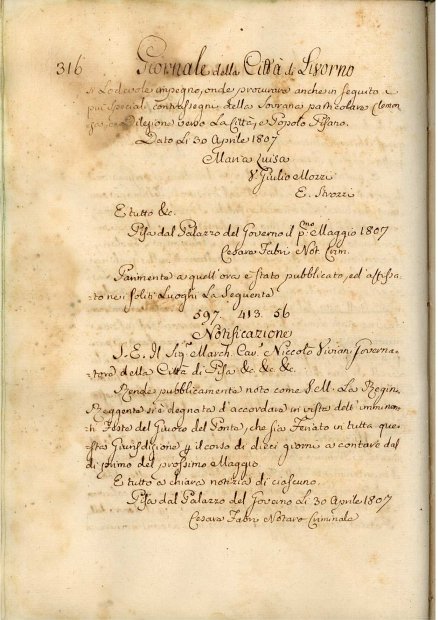 316 Giornale della Città di Livorno
sì Lodevole impegno, onde procurare anche in seguito i
più speciali contrassegni della Sovrana particolare Clemen-
za, e Dilezione verso La Città, e Popolo Pisano.
Dato Li 30 Aprile 1807
Maria Luisa
V. Giulio Mozzi
E. Strozzi
E tutto &c.
Pisa dal Palazzo del Governo il pmo Maggio 1807
Cesare Fabri Not. Crim.
Parimente a quell'ora è stato pubblicato, ed affissa-
to nei soliti Luoghi La Seguente
597. 413. 56
Notificazione
S. E. Il Sig. March. Cav. Niccolò Viviani Governa-
tore della Città di Pisa &c. &c. &c.
Rende pubblicamente noto come S. M. La Regin.
Reggente si è degnata d'accordare in vista dell'imminen-
ti Feste del Giuoco del Ponte, che sia Feriato in tutta que-
sta Giurisdizione il corso di dieci giorni a contare dal
dì primo del prossimo Maggio.
E tutto a chiara notizia di ciascuno.
Pisa dal Palazzo del Governo Li 30 Aprile 1807
Cesare Fabri Notaro Criminale